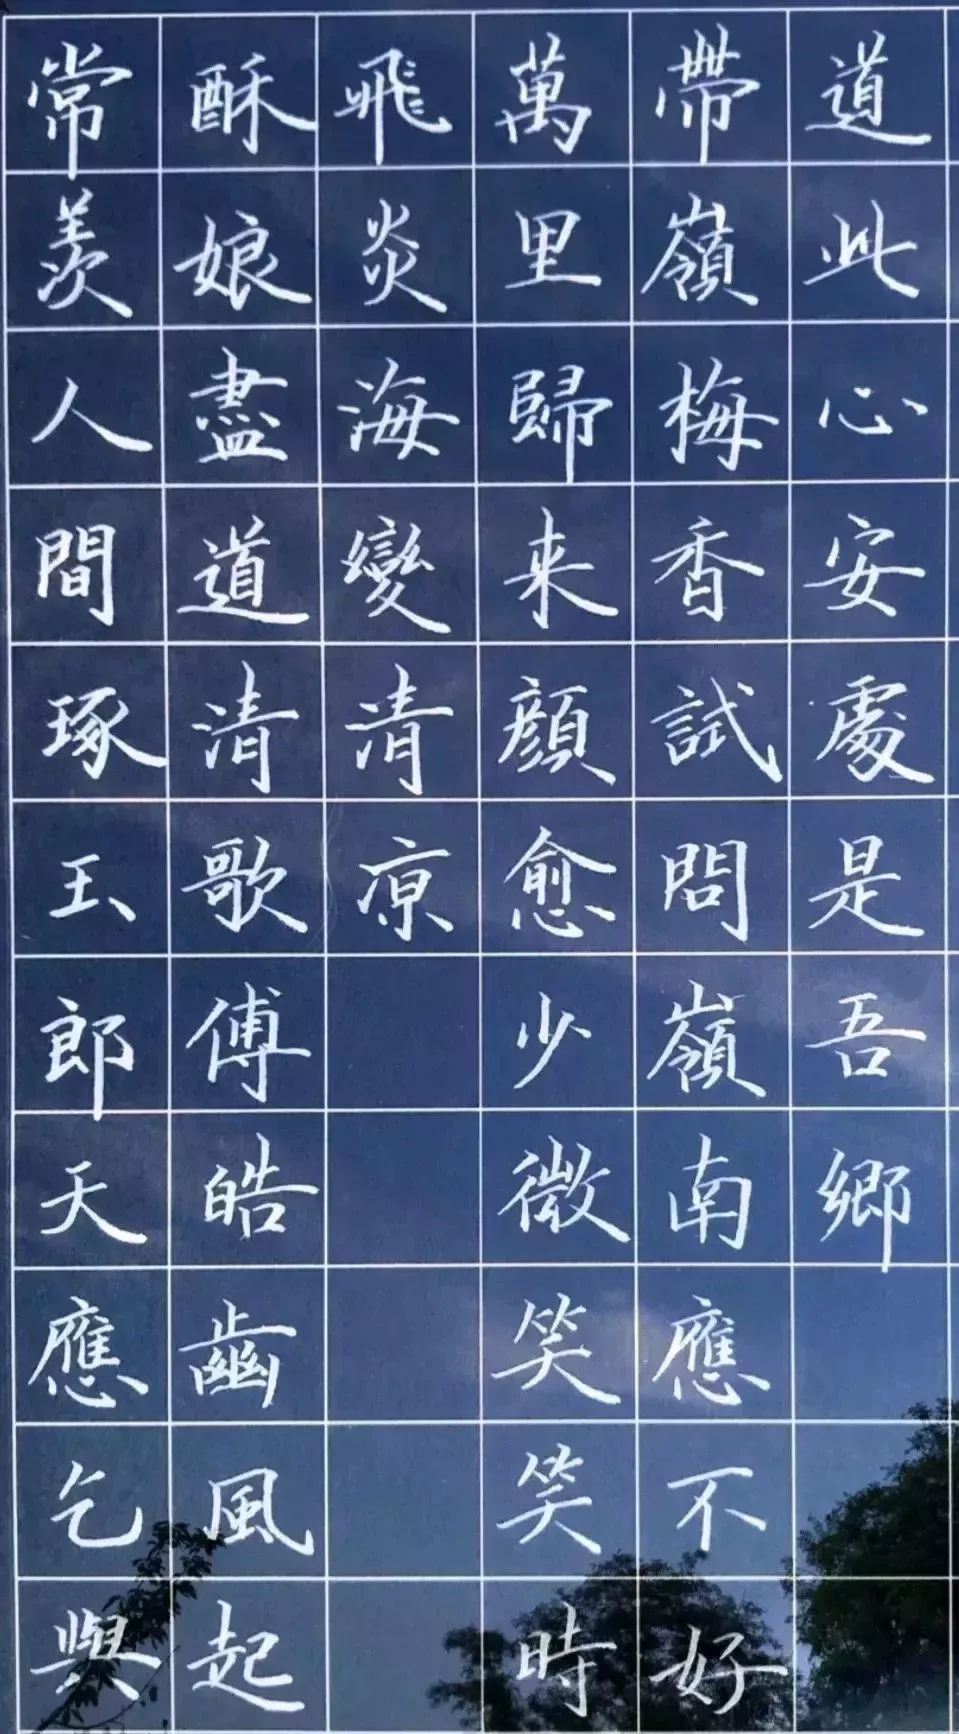 常羨人間琢玉郎天應乞與
酥娘盡道清歌傅皓齒風起
飛炎海變清凉
萬里歸来顔愈少微笑笑時
帶嶺梅香試問嶺南應不好
道此心安處是吾鄉